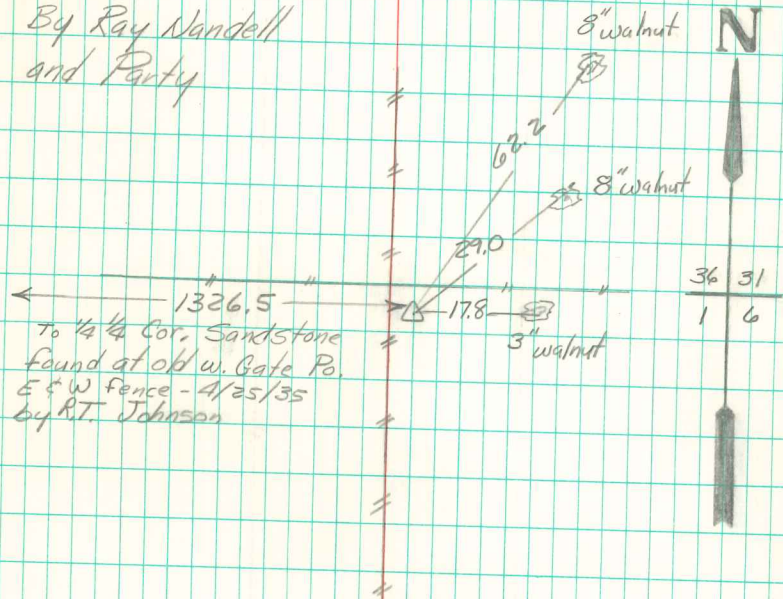 By Ray Nandell
and Party
8" walnut
N
62.2
8" walnut
29.0
36 31
1326.5
17.8
1 6
3" walnut
To 1/4 1/4 Cor. Sandstone
found at old w. Gate Po.
E & W Fence - 4/25/35
by R.T. Johnson